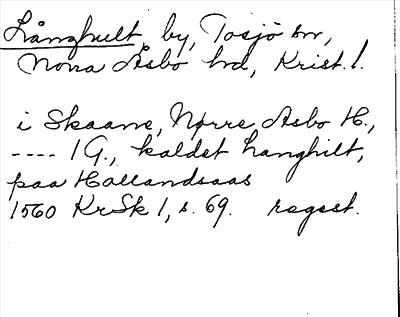 Långhult, by, Tosjö sn,
Norra Åsbo hd, Krist. l.
i Skaane, Nørre Asbo H.,
---- 1 G., kaldet Langhilt,
paa Hallandsaas
1560 KrSk 1, s. 69. regest.